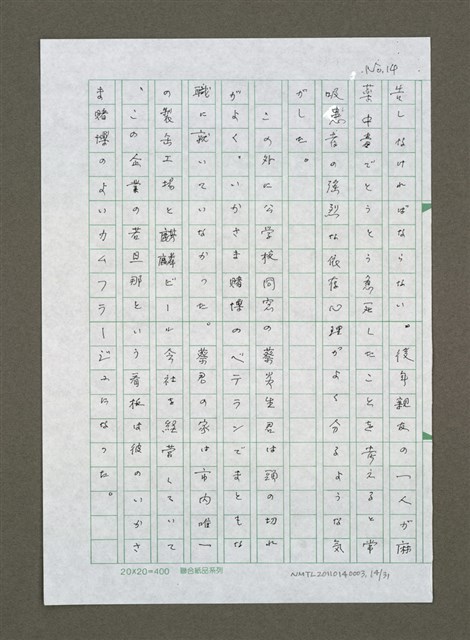 No.14
告しなければならない。後年親友の一人が麻
薬中毒でとうとう急死したことを考えると常
吸患者の強烈な依存心理がよく分るような気
がした。
この外に公学校同窓の蔡炎生君は頭の切れ
がよく、いかさま賭博のベテランでまともな
職に就いていなかった。蔡君の家は市内唯一
の製缶工場と麒麟ビール会社を経営していて
、この企業の若旦那という看板は彼のいかさ
ま賭博のよいカムフラージュになった。
20×20=400 聯合紙品系列
NMTL20110140003, 14/31